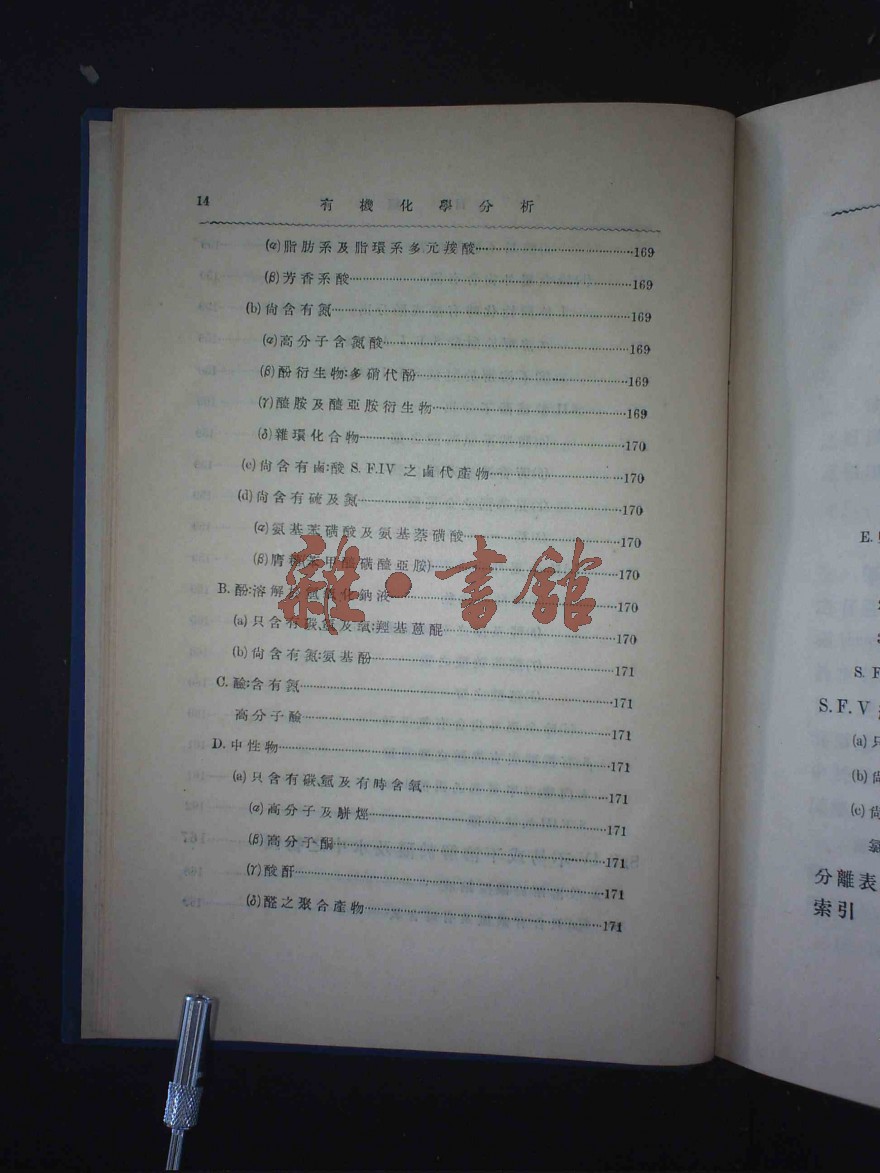 14 有機化學分析
(α)脂肪系及脂環系多元羧酸……169
(β)芳香系酸……169
(b)尙含有氮……169
(α)高分子含氮酸……169
(β)酚衍生物:多硝代酚……169
(γ)醯胺及醯亞胺衍生物……169
(δ)雜環化合物……170
(c)尙含有鹵:酸 S. F.IV 之鹵代產物……170
(d)尙含有硫及氮……170
(α)氨基苯磺酸及氨基萘磺酸……170
(β)膺糖(苯甲醯磺醯亞胺)……170
B.酚:溶解於氫氧化鈉液……170
(a)只含有碳、氫及氧:羥基蒽醌……170
(b)尙含有氮:氨基酚……171
C.鹼:含有氮……171
高分子鹼……171
D.中性物……171
(a)只含有碳、氫及有時含氧……171
(α)高分子及駢烴……171
(β)高分子酮……171
(γ)酸酐……171
(δ)醛之聚合產物……171
雜·書館
E.
S. F
S. F. V
(a)只
(b)尙
(c)尙
氯
分離表
索引